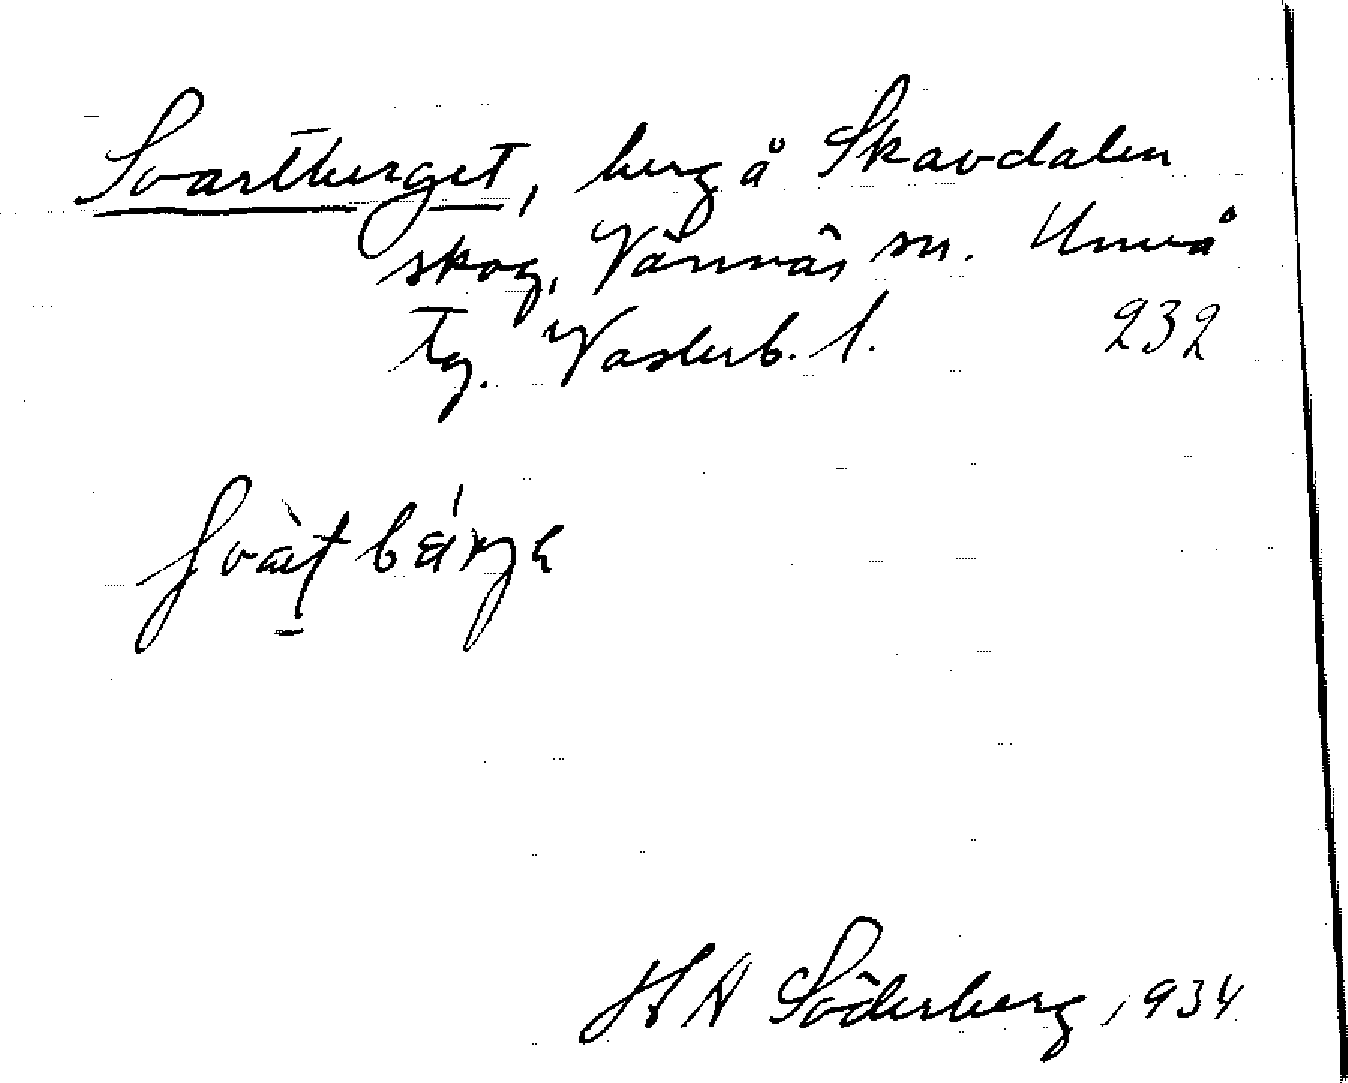 Svartberget, berg å Skavdalen
skog, Vännäs sn. Umeå
tg. Västerb. l. 232
H A Söderberg, 1934